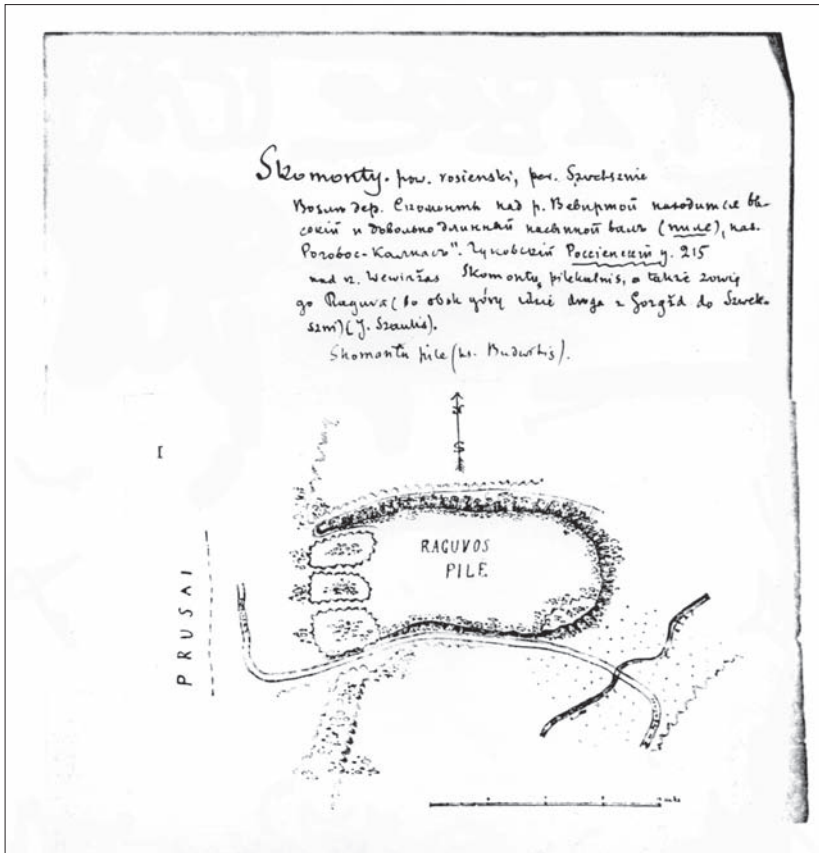 Skomonty. pow. rosienski, par. Szweksznie
Возлѣ дер. Скомонть над р. Вевиртой находится вы-
сокій и довольно длинный насыпной валъ (пиле), наз.
Рогово́с-Калнасъ". Гуковскій Россіенскій у. 215
nad rz. Wewirżas Skomontų pilekalnis, a także zowią
go Raguva (bo obok góry idzie droga z Gorgżd do Szwek-
szni) (J. Szaulis).
Skomontu pile (ks. Budwitis).
N
S
I
RAGUVOS
PILE
PRUSAI